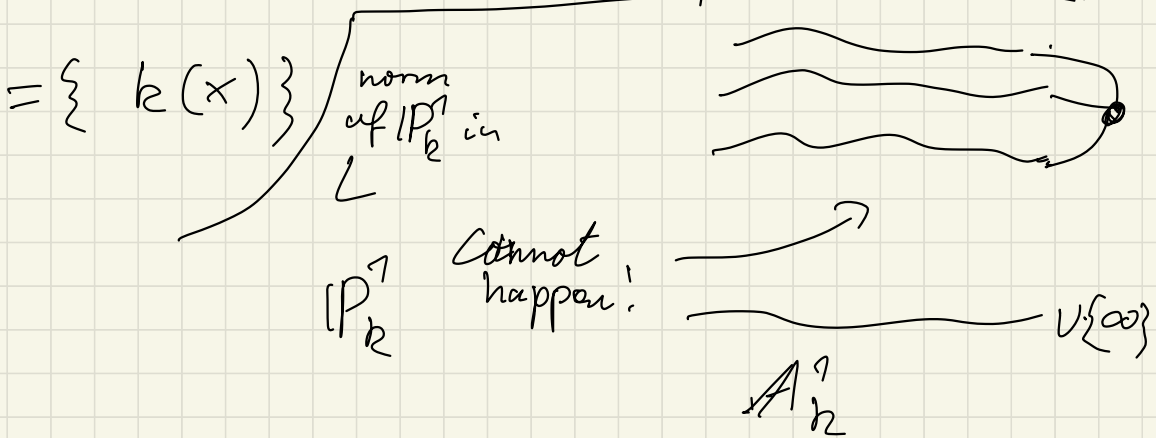 = { k(x) }
norm
of ℙ¹_k in
L
ℙ¹_k
Cannot
happen!
∪{∞}
𝔸¹_k